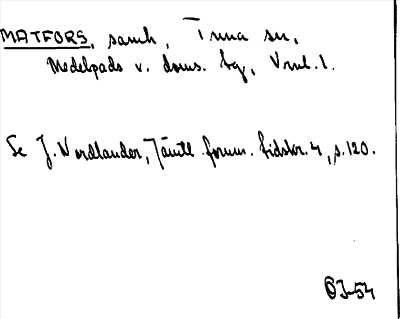 MATFORS, samh, Tuna sn,
Medelpads v. doms. bg, Vnl. l.
Se J. Nordlander, Jämtl. fornm. tidskr. 4, s. 120.